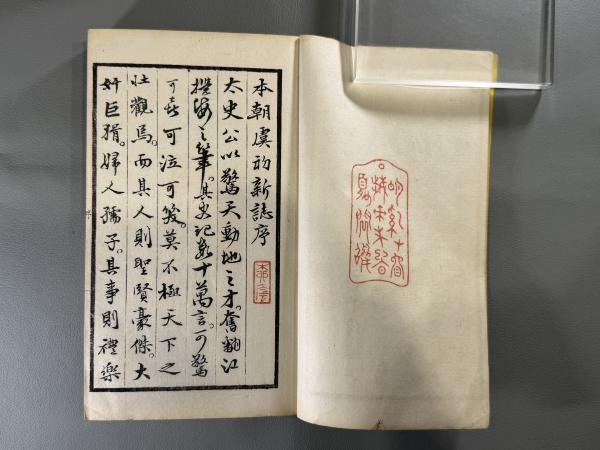 本朝虞初新誌序
太史公以驚天動地之才。奮翻江
攪海之筆。其史記数十萬言。可驚
可喜可泣可笑。莫不極天下之
壯觀焉。而其人則聖賢豪傑。大
奸巨猾。婦人孺子。其事則禮樂